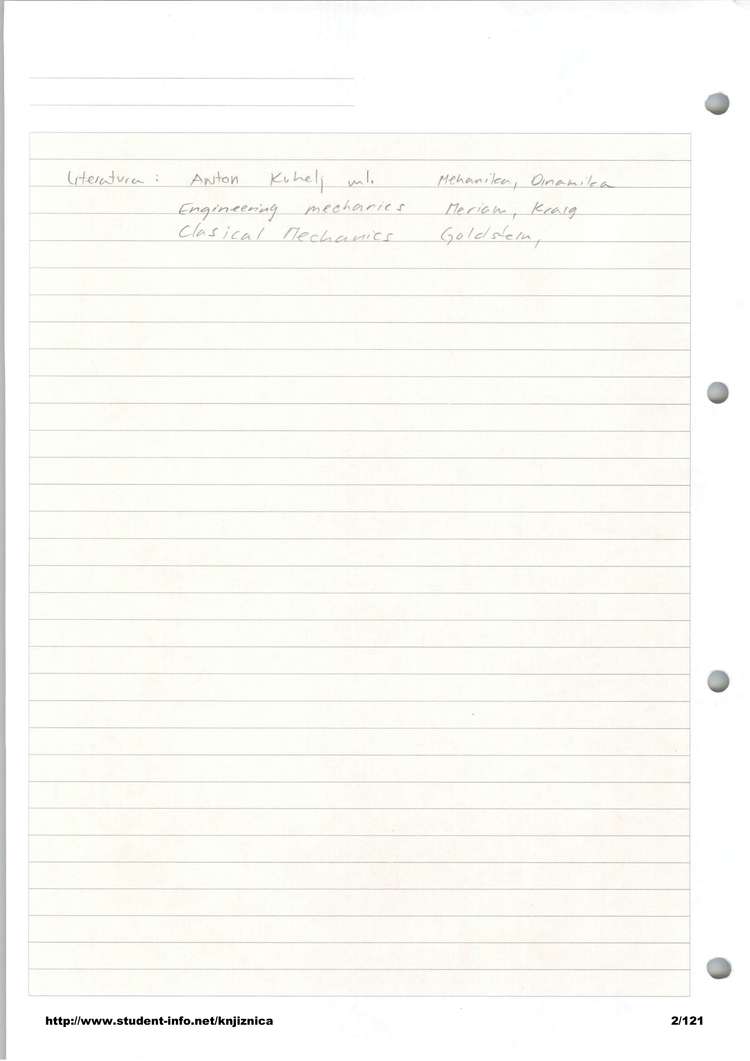 Literatura : Anton Kuhelj ml. Mehanika, Dinamika
Engineering mechanics Meriam, Kraig
Clasical Mechanics Goldstein,
http://www.student-info.net/knjiznica 2/121